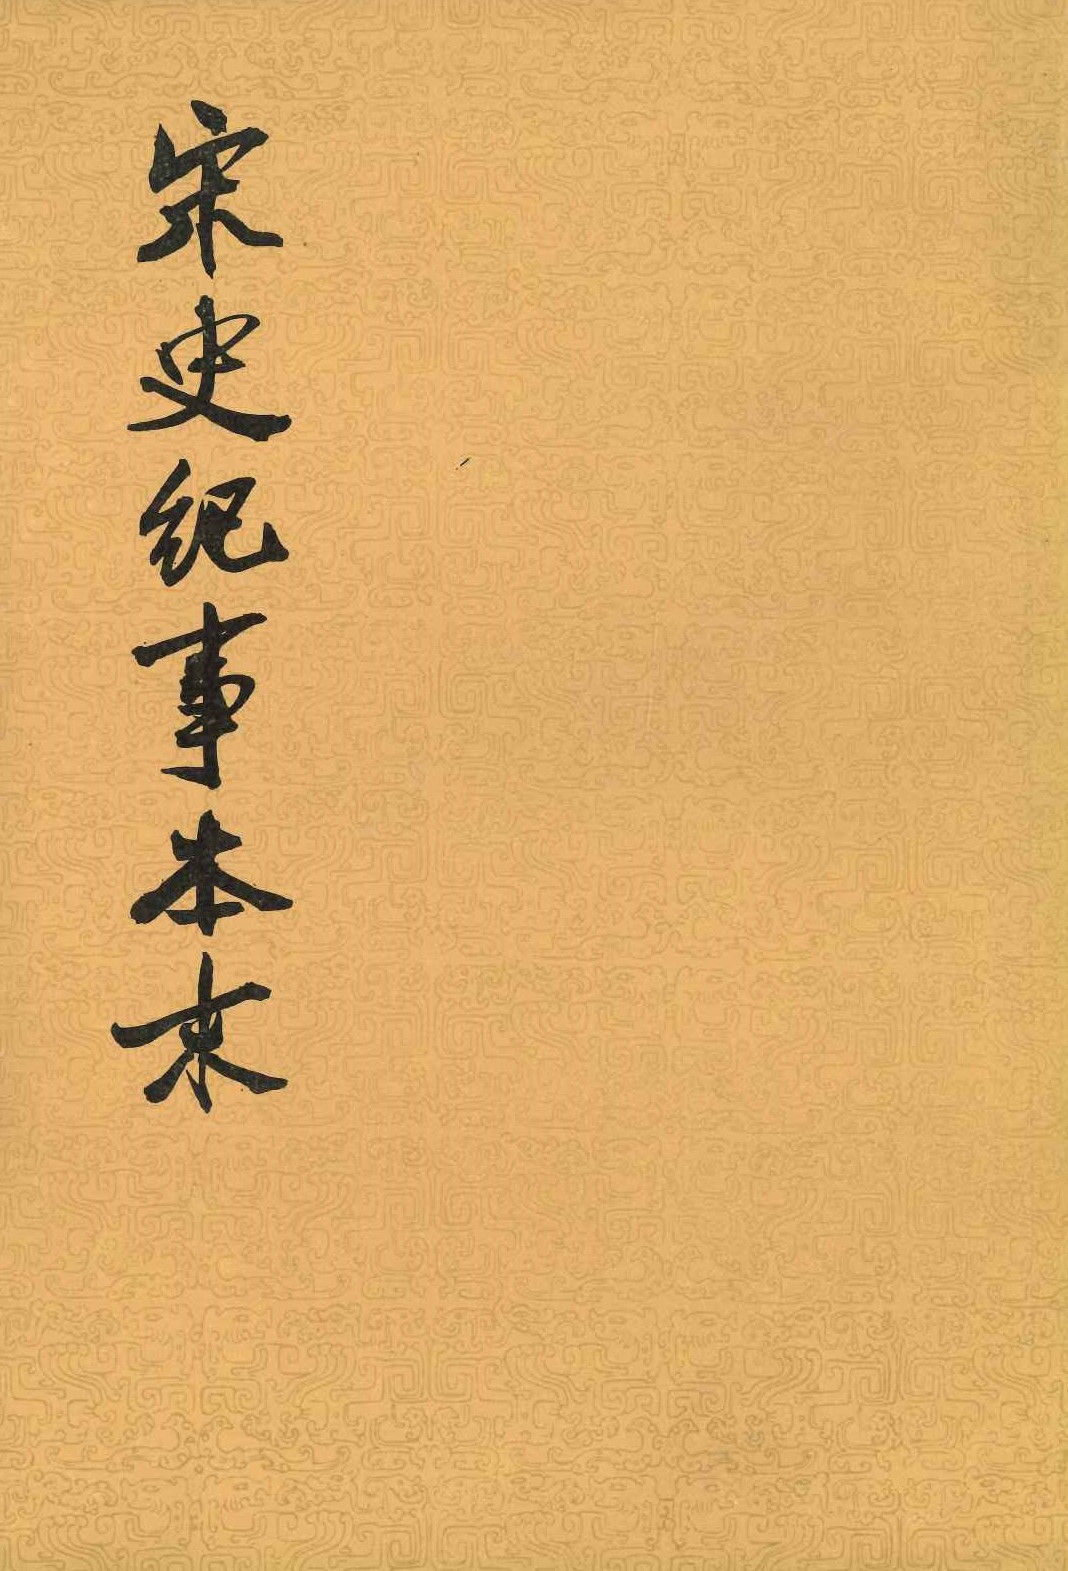 宋史纪事本末